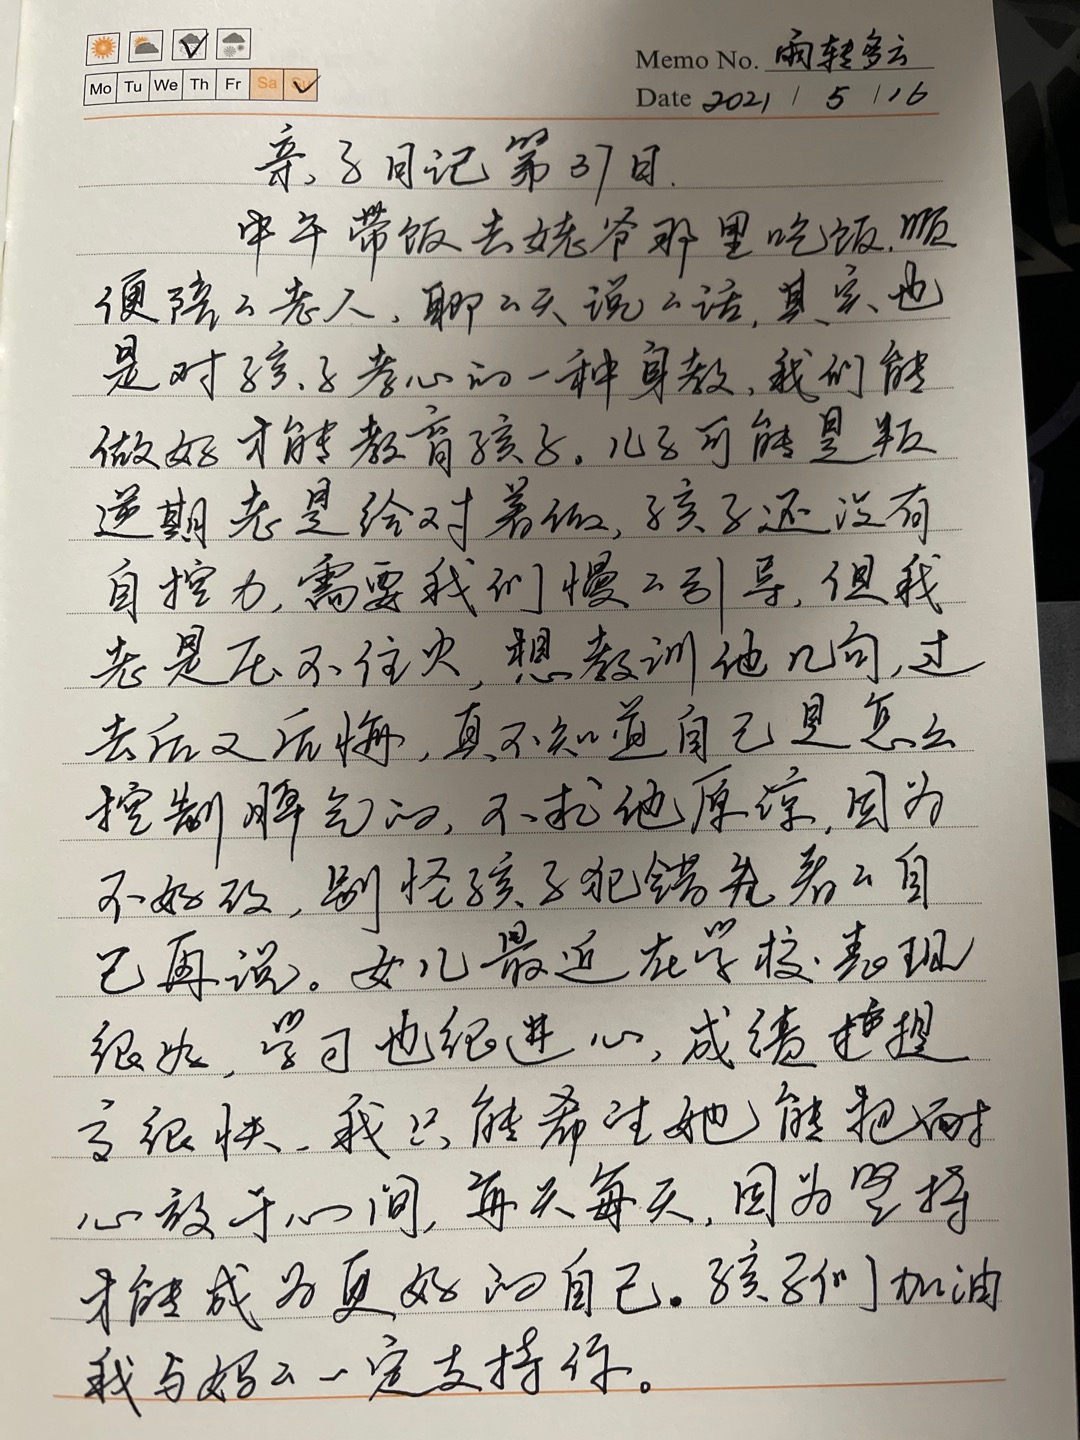 Memo No. 雨转多云
Mo Tu We Th Fr Sa Su
Date 2021 / 5 / 16
亲子日记第37日.
中午带饭去姥爷那里吃饭.顺
便陪々老人,聊々天说々话,其实也
是对孩子孝心的一种身教,我们能
做好才能教育孩子。儿子可能是叛
逆期老是给对着做,孩子还没有
自控力,需要我们慢々引导,但我
老是压不住火,想教训他几句,过
去后又后悔,真不知道自己是怎么
控制脾气的,不找他原谅,因为
不好改,别怪孩子犯错先看々自
己再说。女儿最近在学校表现
很好,学习也很进心,成绩提
高很快、我只能希望她能把耐
心放于心间,每天每天,因为坚持
才能成为更好的自己。孩子们加油
我与妈々一定支持你。